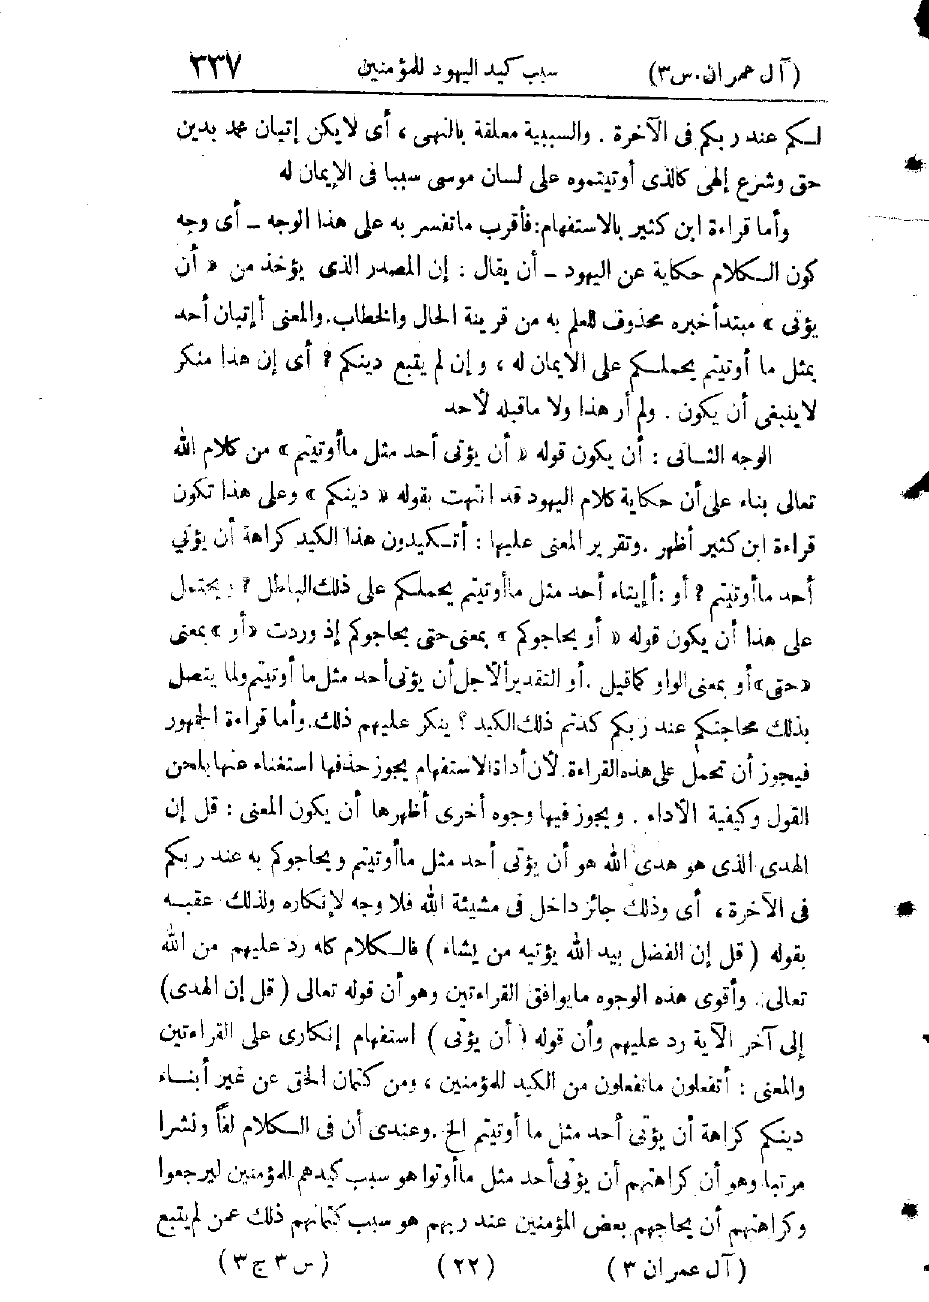 (آل عمران . س ٣) سبب كيد اليهود للمؤمنين ٣٣٧
لكم عند ربكم فى الآخرة . والسببية معلقة بالنهى ، أى لايكن إتيان محمد بدين
حق وشرع إلهى كالذى أوتيتموه على لسان موسى سببا فى الإيمان له
وأما قراءة ابن كثير بالاستفهام: فأقرب ماتفسر به على هذا الوجه ــ أى وجه
كون الكلام حكاية عن اليهود ــ أن يقال : إن المصدر الذى يؤخذ من « أن
يؤتى » مبتدأ خبره محذوف للعلم به من قرينة الحال والخطاب. والمعنى أإتيان أحد
بمثل ما أوتيتم يحملكم على الايمان له ، وإن لم يتبع دينكم ؟ أى إن هذا منكر
لا ينبغى أن يكون . ولم أر هذا ولا ماقبله لأحد
الوجه الثانى : أن يكون قوله « أن يؤتى أحد مثل ماأوتيتم » من كلام الله
تعالى بناء على أن حكاية كلام اليهود قد انتهت بقوله « دينكم » وعلى هذا تكون
قراءة ابن كثير أظهر . وتقرير المعنى عليها : أتكيدون هذا الكيد كراهة أن يؤتى
أحد ماأوتيتم ؟ أو : أإيتاء أحد مثل ماأوتيتم يحملكم على ذلك الباطل ؟ ويحتمل
على هذا أن يكون قوله « أو يحاجوكم » بمعنى حتى يحاجوكم إذ وردت «أو» بمعنى
«حتى» أو بمعنى الواو كماقيل . أو التقدير ألأجل أن يؤتى أحد مثل ما أوتيتم ولما يتصل
بذلك محاجتكم عند ربكم كدتم ذلك الكيد ؟ ينكر عليهم ذلك. وأما قراءة الجمهور
فيجوز أن تحمل على هذه القراءة. لأن أداة الاستفهام يجوز حذفها استغناء عنها بلحن
القول وكيفية الأداء . ويجوز فيها وجوه أخرى أظهرها أن يكون المعنى : قل إن
الهدى الذى هو هدى الله هو أن يؤتى أحد مثل ماأوتيتم ويحاجوكم به عند ربكم
فى الآخرة ، أى وذلك جائز داخل فى مشيئة الله فلا وجه لإنكاره ولذلك عقبه
بقوله ( قل إن الفضل بيد الله يؤتيه من يشاء ) فالكلام كله رد عليهم من الله
تعالى . وأقوى هذه الوجوه مايوافق القراءتين وهو أن قوله تعالى ( قل إن الهدى)
إلى آخر الآية رد عليهم وأن قوله ( أن يؤتى ) استفهام إنكارى على القراءتين
والمعنى : أتفعلون ماتفعلون من الكيد للمؤمنين ، ومن كتمان الحق عن غير أبناء
دينكم كراهة أن يؤتى أحد مثل ما أوتيتم الخ . وعندى أن فى الكلام لفاً ونشرا
مرتبا وهو أن كراهتهم أن يؤتى أحد مثل ماأوتوا هو سبب كيدهم للمؤمنين ليرجعوا
وكراهتهم أن يحاجهم بعض المؤمنين عند ربهم هو سبب كتمانهم ذلك عمن لم يتبع
(آل عمران ٣ ) ( ٢٢ ) ( س ٣ ج ٣ )